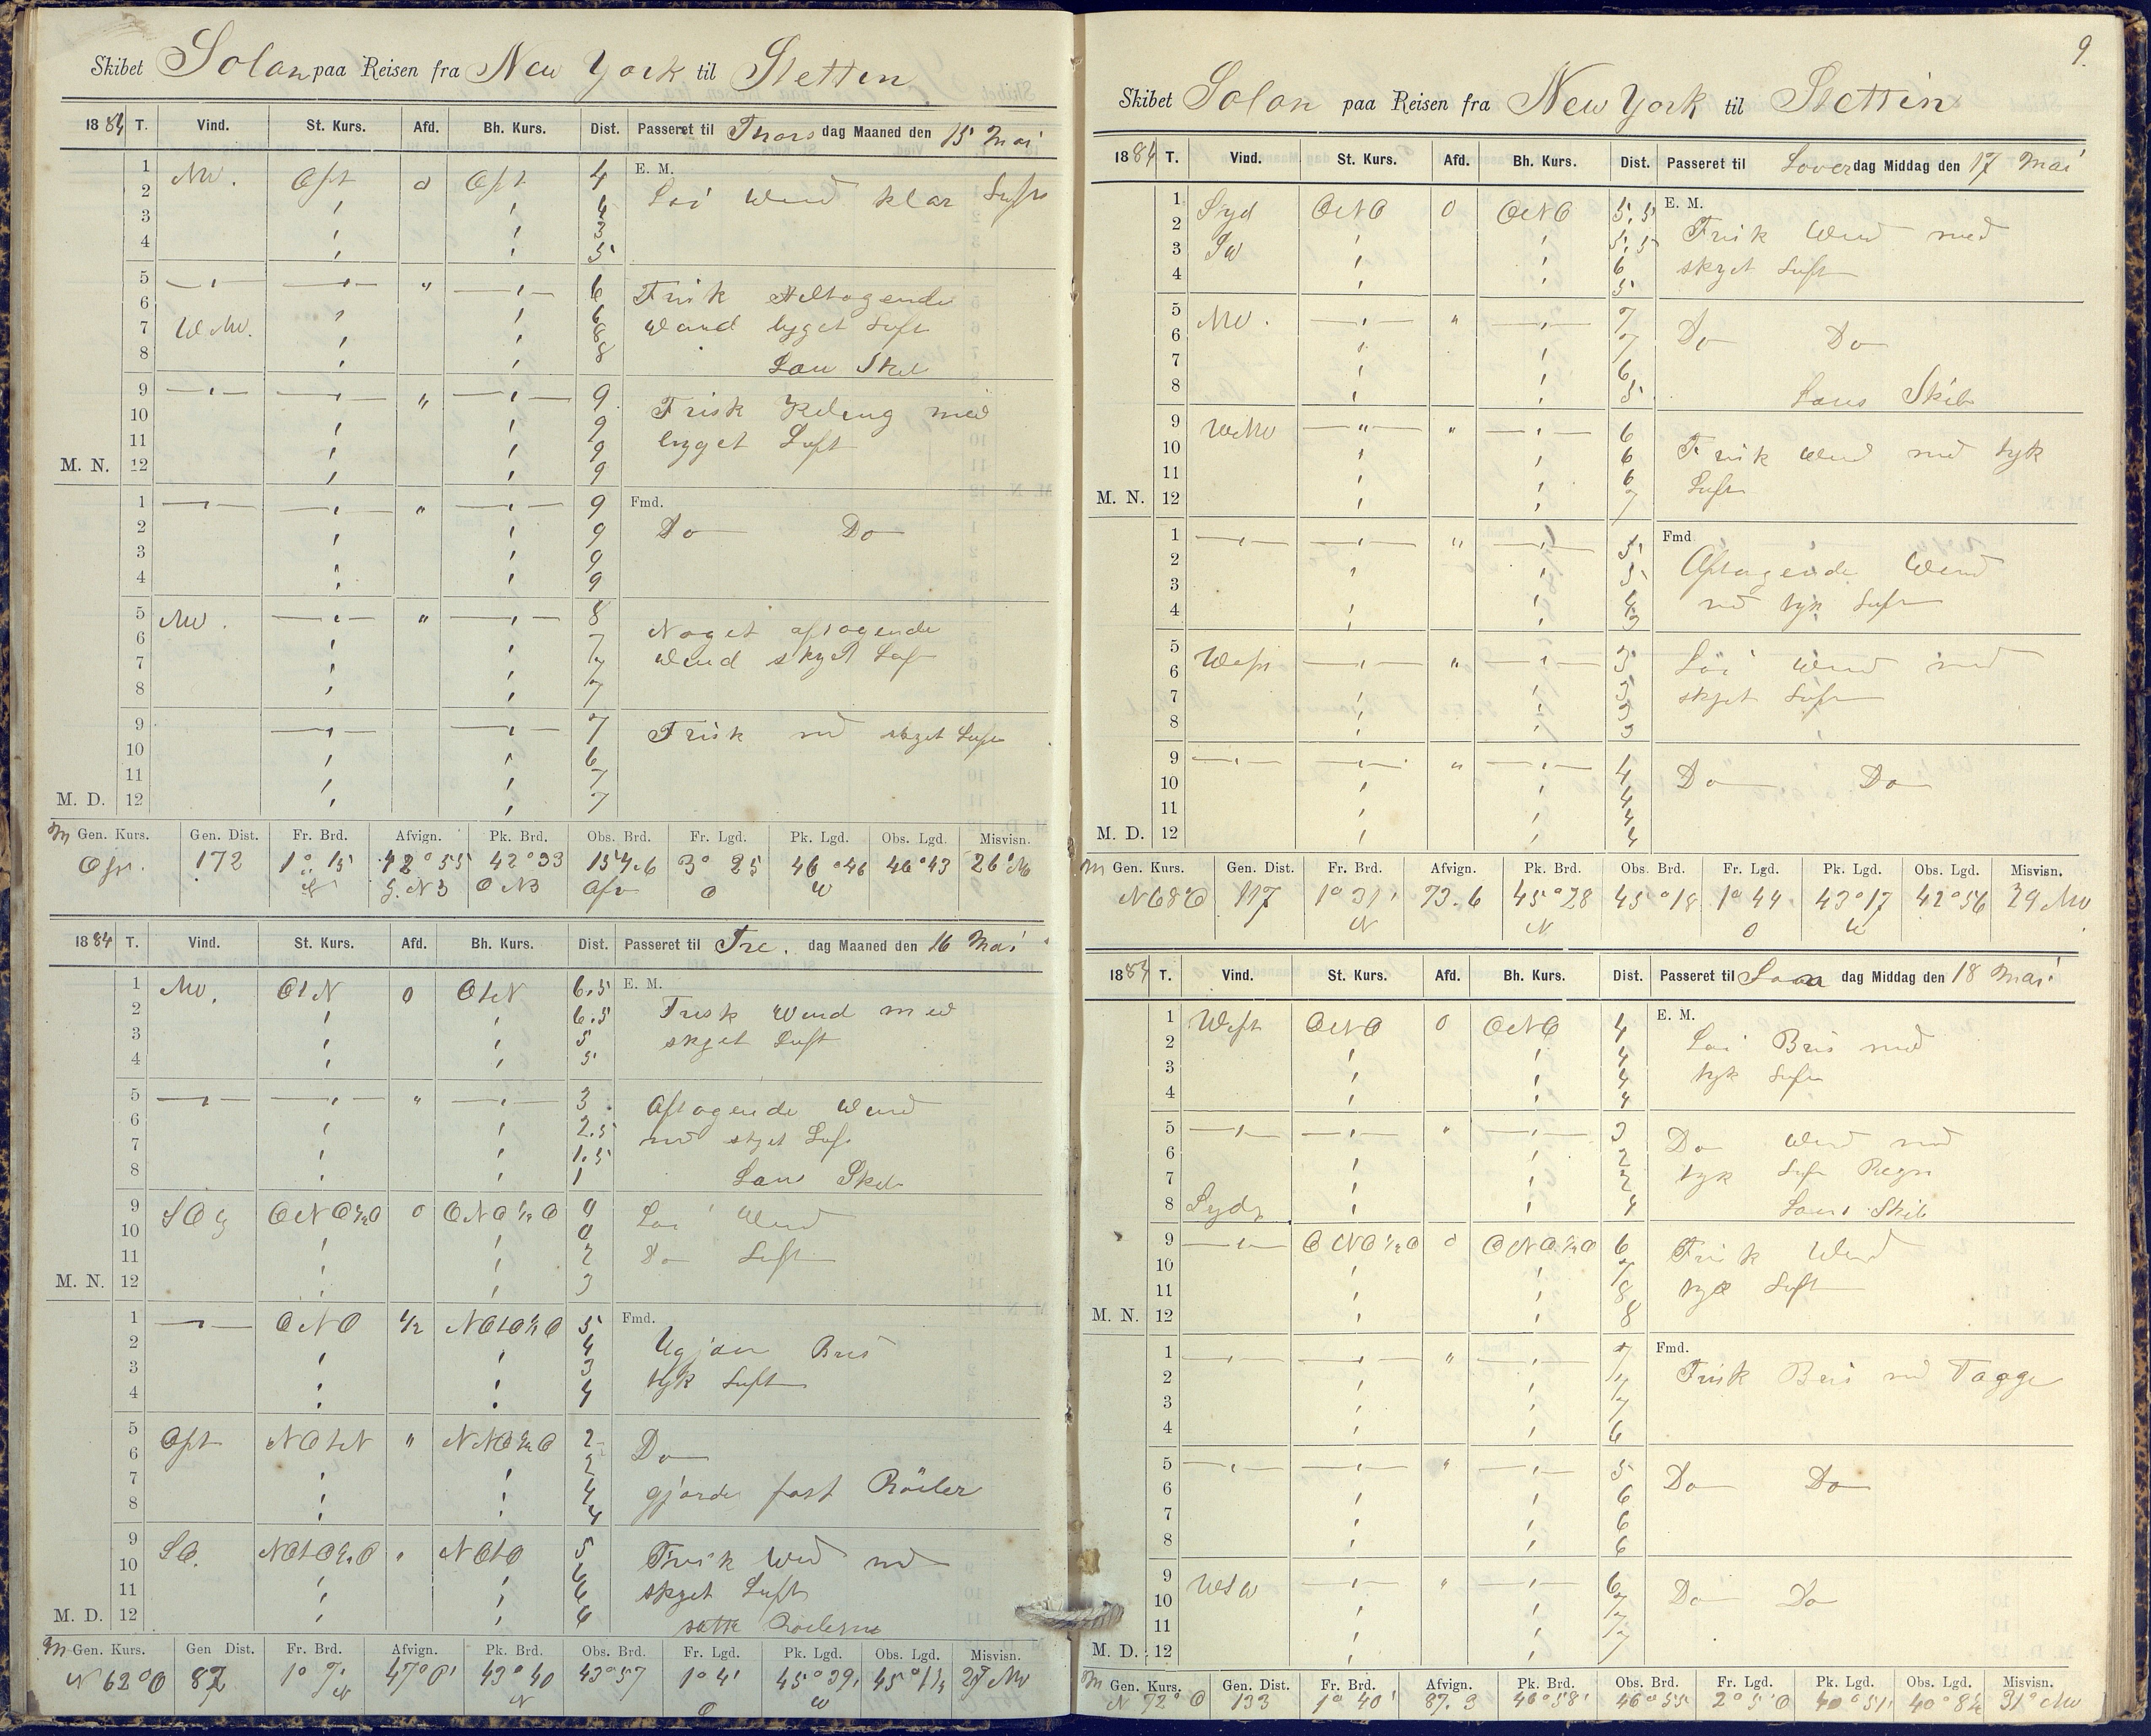 Skibet Solon paa Reisen fra New York til Stettin
1884 T. Vind. St. Kurs. Afd. Bh. Kurs. Dist. Passeret til Thors dag Maaned den 15 Mai
1 NW. Ost 0 Ost 4 E. M.
2 4 Löi Wind klar Luft
3 3
4 5
5 " 6 Frisk Tiltagende
6 6 Wind bygget Luft
7 WNW. 8
8 8 Lens Skib
9 " 9 Frisk Kuling med
10 9 bygget Luft
11 9
M. N. 12 9
1 " 9 Fmd.
2 9 Do Do
3 9
4 9
5 NW. " 8 Noget aftagende
6 7 Wind skyet Luft
7 7
8 7
9 7 Frisk med skyet Luft
10 6
11 7
M. D. 12 7
Gen. Kurs. Gen. Dist. Fr. Brd. Afvign. Pk. Brd. Obs. Brd. Fr. Lgd. Pk. Lgd. Obs. Lgd. Misvisn.
Ost. 172 1° 15 42°55 42°33 154.6 3° 25 46°46 46°43 26° NW
1884 T. Vind. St. Kurs. Afd. Bh. Kurs. Dist. Passeret til Fre. dag Maaned den 16 Mai
1 NW. OtN 0 OtN 6.5 E. M.
2 6.5 Frisk Wind med
3 5 skyet Luft
4 5
5 " 3 Aftagende Wind
6 2.5 med skyet Luft
7 1.5
8 1 Lens Skib
9 SO ONO½O 0 ONO½O 0 Löi Wind
10 0 Do Luft
11 2
M. N. 12 3
1 ONO ½ NOtO½O 5 Fmd.
2 4 Ugjæv Bris
3 3 tyk Luft
4 4
5 Ost NOtN " NNO½O 2 Do
6 2
7 4 gjorde fast Röiler
8 4
9 SO. NOtO½O NOtO 5 Frisk Wind med
10 6 skyet Luft
11 6
M. D. 12 6 satte Roilerne
Gen. Kurs. Gen Dist. Fr. Brd. Afvign. Pk. Brd. Obs. Brd. Fr. Lgd. Pk. Lgd. Obs. Lgd. Misvisn.
N 62° O 87 43°40 43°57 1° 4' 45°39' 27 NW
9.
Skibet Solon paa Reisen fra New York til Stettin
1884 T. Vind. St. Kurs. Afd. Bh. Kurs. Dist. Passeret til Lover dag Middag den 17 Mai
1 Syd ONO 0 ONO 5.5 E. M.
2 5.5 Frisk Wind med
3 SW 6 skyet Luft
4 5
5 NW. " 7
6 7 Do Do
7 6
8 5 Lens Skib
9 WNW " 6
10 6 Frisk Wind med tyk
11 6 Luft
M. N. 12 7
1 " 5 Fmd
2 5 Aftagende Wind
3 4 med tyk Luft
4 3
5 West " 3 Löi Wind med
6 3 skyet Luft
7 3
8 3
9 " 4
10 4 Do Do
11 4
M. D. 12 4
Gen. Kurs. Gen. Dist. Fr. Brd. Afvign. Pk. Brd. Obs. Brd. Fr. Lgd. Pk. Lgd. Obs. Lgd. Misvisn.
N 68 O 117 1° 31' 73.6 45°28 45°18 1° 44 43°17 42°56 29 NW
N N O W
1884 T. Vind. St. Kurs. Afd. Bh. Kurs. Dist. Passeret til Søn dag Middag den 18 Mai
1 West ONO 0 ONO 4 E. M.
2 4 Löi Bris med
3 4 tyk Luft
4 4
5 " 3 Do Wind med
6 2 tyk Luft Regn
7 2
8 Sydg 4 Lens Skib
9 ONO½O 0 ONO½O 6 Frisk Wind
10 7 tyk Luft
11 8
M. N. 12 8
1 " 7 Fmd.
2 7 Frisk Bris med Taage
3 7
4 6
5 " 5
6 6 Do Do
7 6
8 6
9 WSW " 6
10 7 Do Do
11 7
M. D. 12 7
Gen. Kurs. Gen. Dist. Fr. Brd. Afvign. Pk. Brd. Obs. Brd. Fr. Lgd. Pk. Lgd. Obs. Lgd. Misvisn.
N 72° O 133 1° 40' 87.3 46°58' 46°55 2° 5' O 40°51' 31° NW